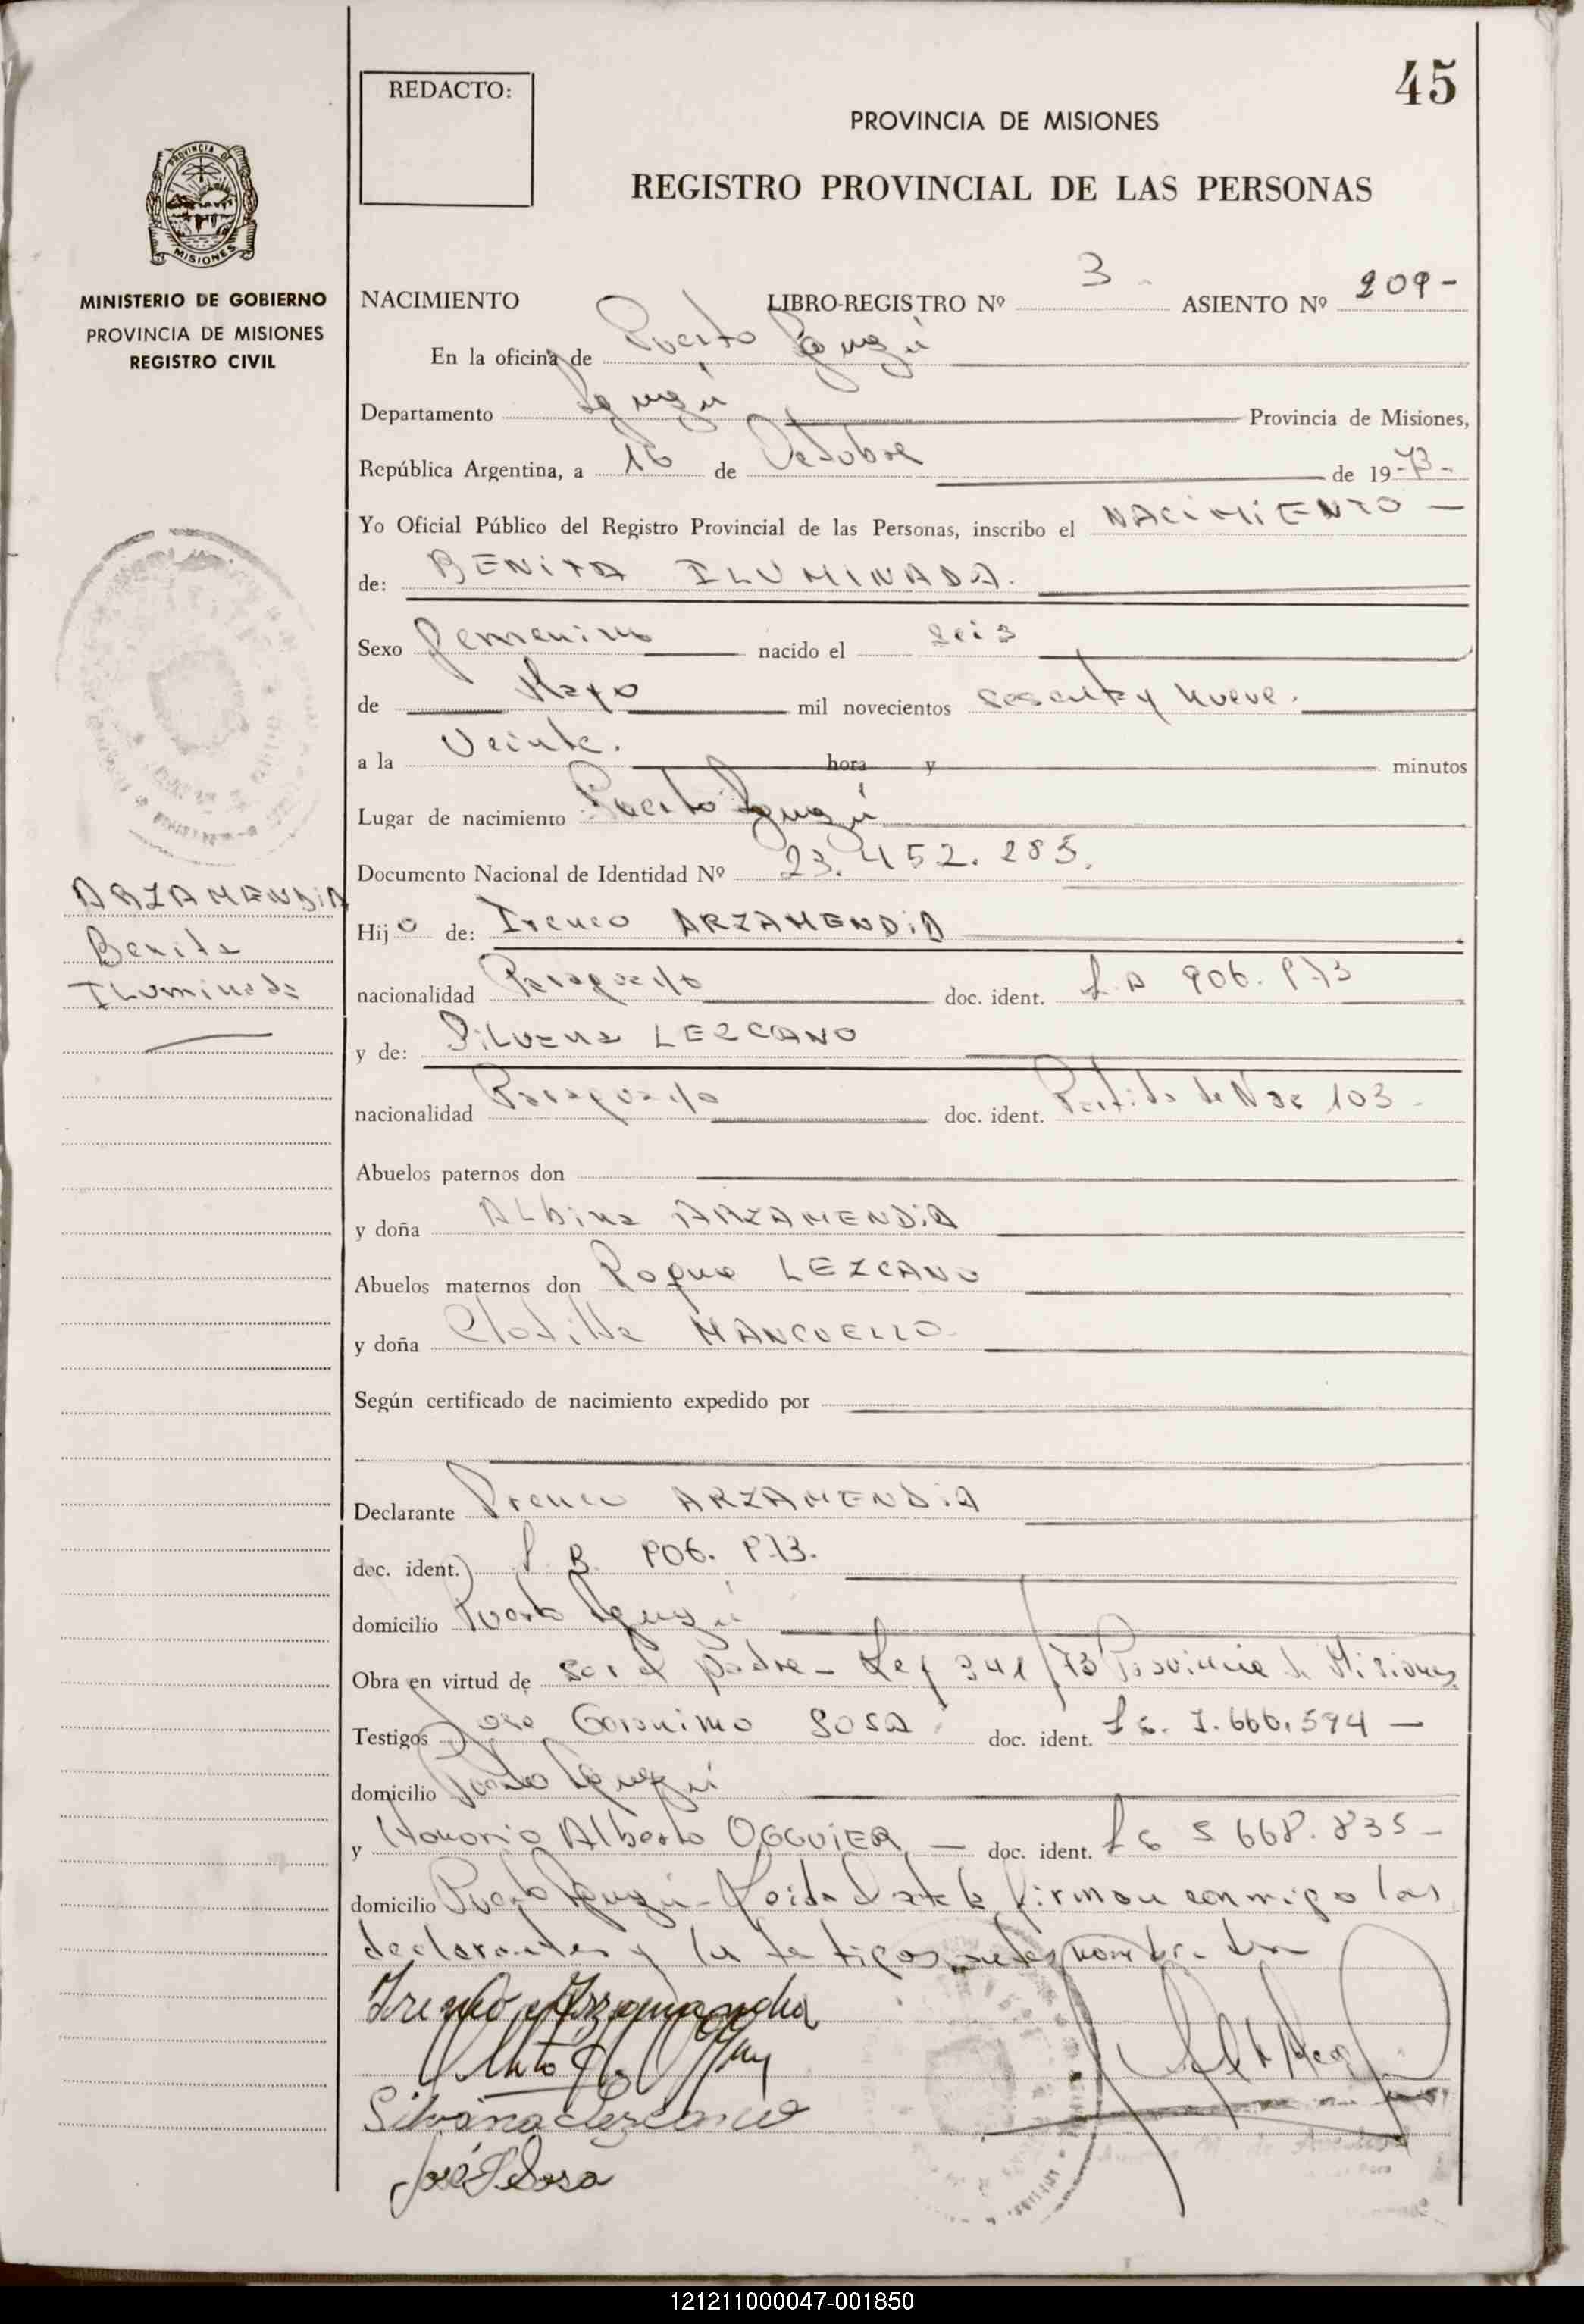 45
REDACTO:
PROVINCIA DE MISIONES
REGISTRO PROVINCIAL DE LAS PERSONAS
PROVINCIA DE
MISIONES
MINISTERIO DE GOBIERNO
PROVINCIA DE MISIONES
REGISTRO CIVIL
NACIMIENTO LIBRO-REGISTRO Nº 3 - ASIENTO Nº 209 -
En la oficina de Puerto Iguazú
Departamento Iguazú Provincia de Misiones,
República Argentina, a 16 de Octubre de 19-73-
Yo Oficial Público del Registro Provincial de las Personas, inscribo el NACIMIENTO -
de: BENITA ILUMINADA.
Sexo femenino nacido el seis
de Mayo mil novecientos sesenta y nueve.
a la Veinte. hora y minutos
Lugar de nacimiento Puerto Iguazú
Documento Nacional de Identidad Nº 23.452.285.
ARZAMENDIA
Benita
Iluminada
Hijo de: Ireneo ARZAMENDIA
nacionalidad Paraguayo doc. ident.
y de: Silvana LEZCANO
nacionalidad Paraguaya doc. ident. Partida de Nac 103 -
Abuelos paternos don
y doña Albina ARZAMENDIA
Abuelos maternos don Roque LEZCANO
y doña Clotilde MANCUELLO
Según certificado de nacimiento expedido por
Declarante Ireneo ARZAMENDIA
doc. ident.
domicilio Puerto Iguazú
Obra en virtud de ser el padre - Ley 341/73 Provincia de Misiones
Testigos José Geronimo SOSA doc. ident. 7.666.594 -
domicilio Puerto Iguazú
y Honorio Alberto OGGUIER - doc. ident. 5 668.835 -
domicilio Puerto Iguazú - Leida el acta la firman conmigo los
declarantes y los testigos antes nombrados
Ireneo Arzamendia
Silvana Lezcano
José G Sosa
121211000047-001850